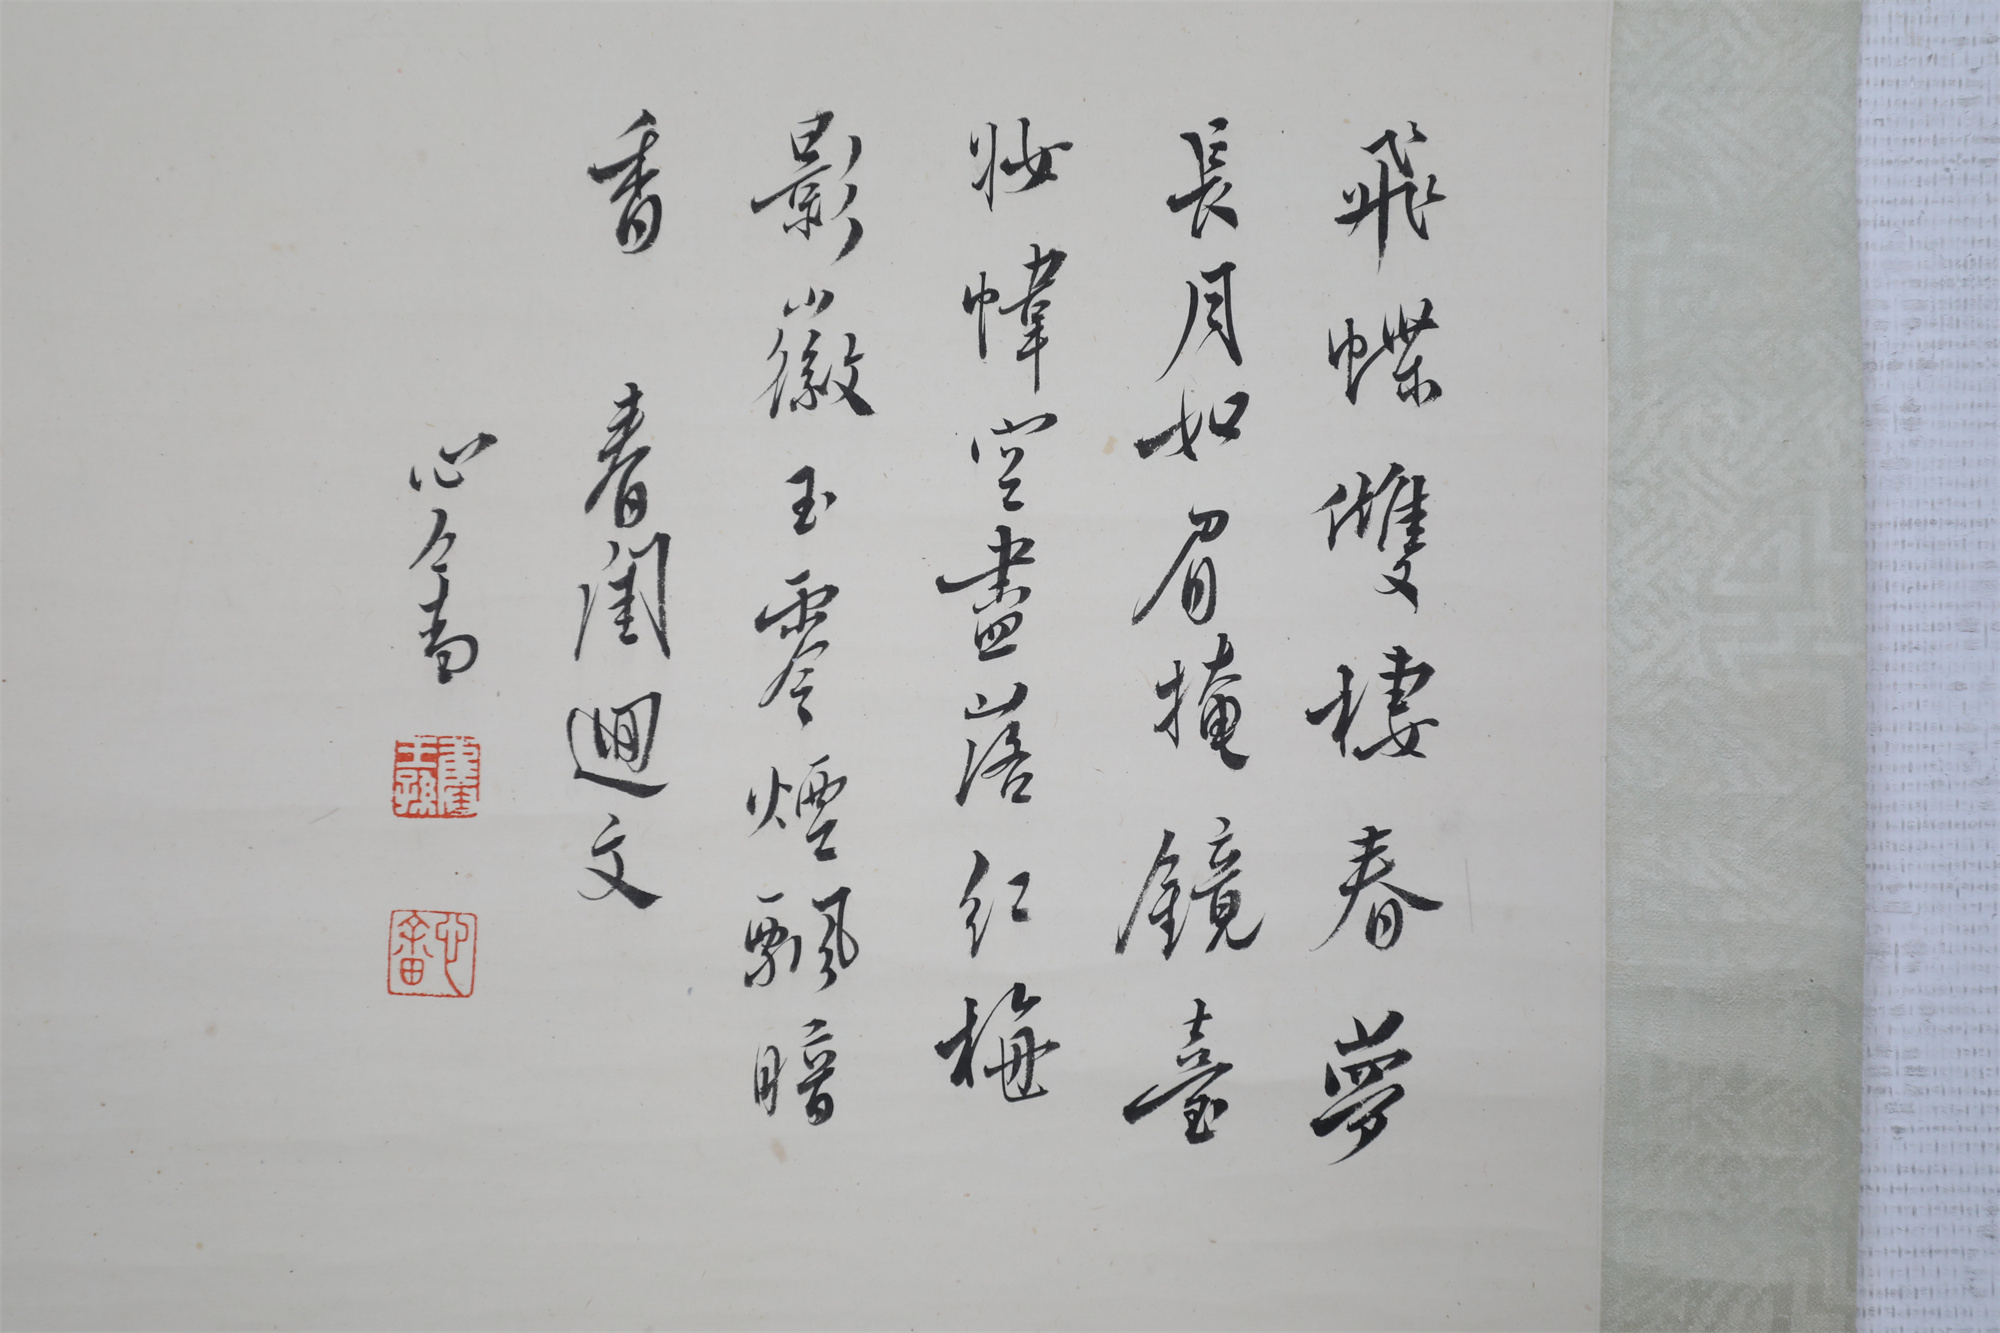 飛蝶雙棲春夢
長月如眉掩鏡臺
妝幃空盡落紅梅
影徽玉零煙飄暗
香 春閨迴文
心畬
舊王孫
心畬